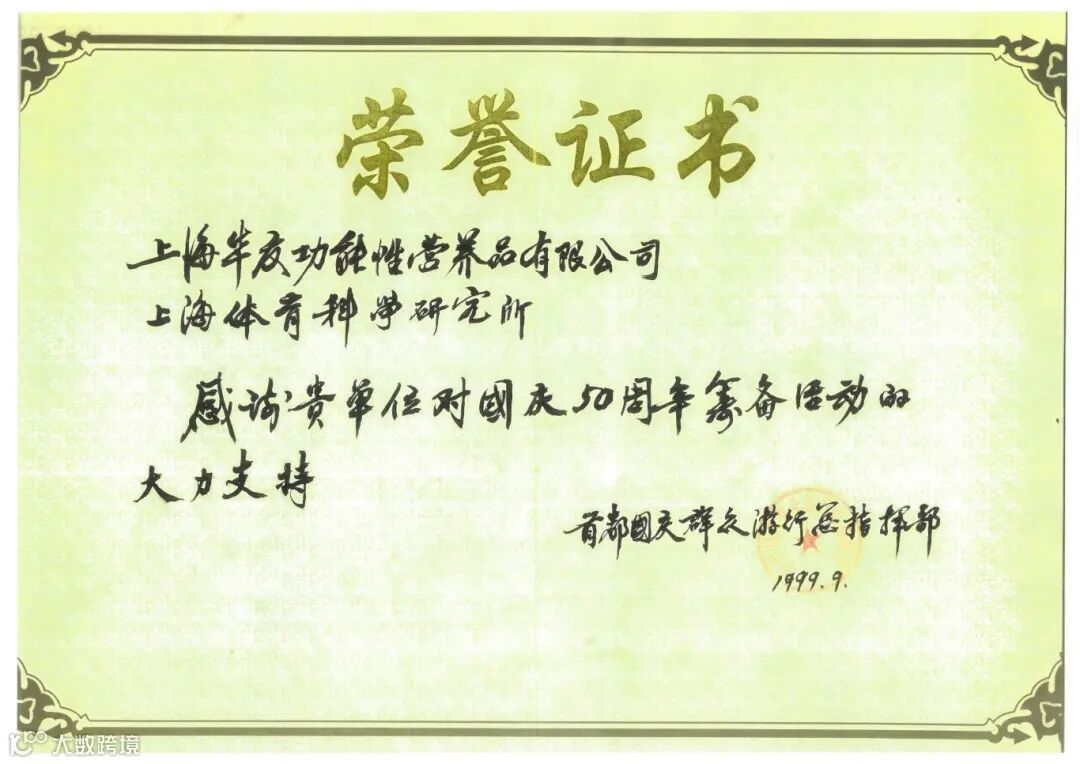 荣誉证书
上海华友功能性营养品有限公司
上海体育科学研究所
感谢贵单位对國庆50周年筹备活动的
大力支持
首都國庆群众游行总指挥部
1999.9.
大数跨境